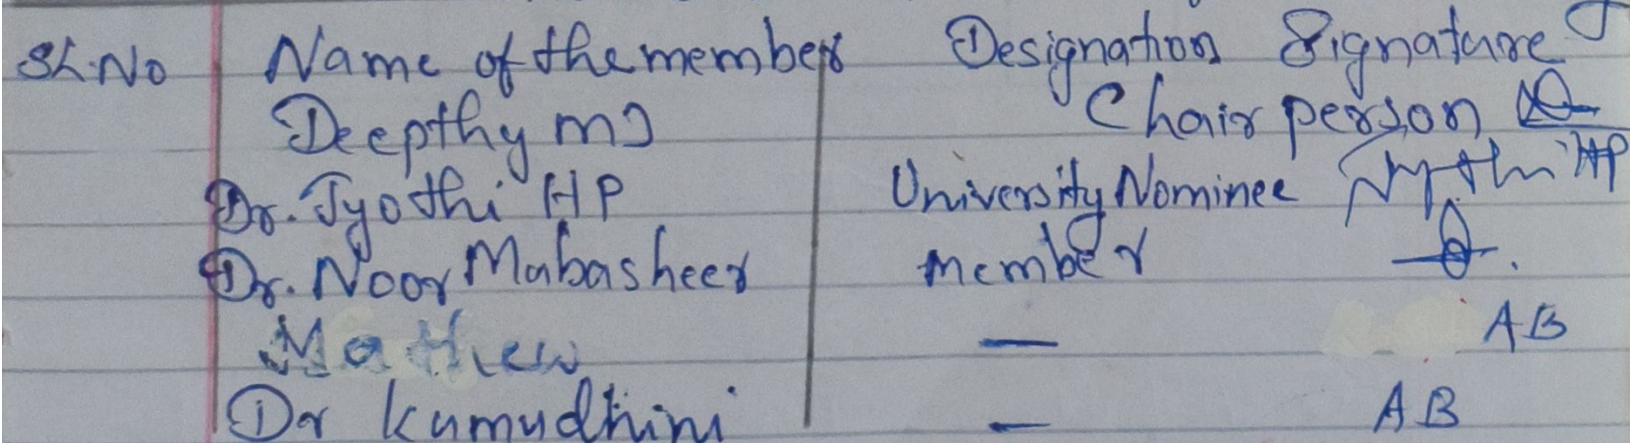 Sl.No Name of the members Designation Signature
Deepthy MJ Chair person
Dr. Jyothi HP University Nominee Jyothi HP
Dr. Noor Mubasheer Member
Mathew — AB
Dr Kumudhini — AB